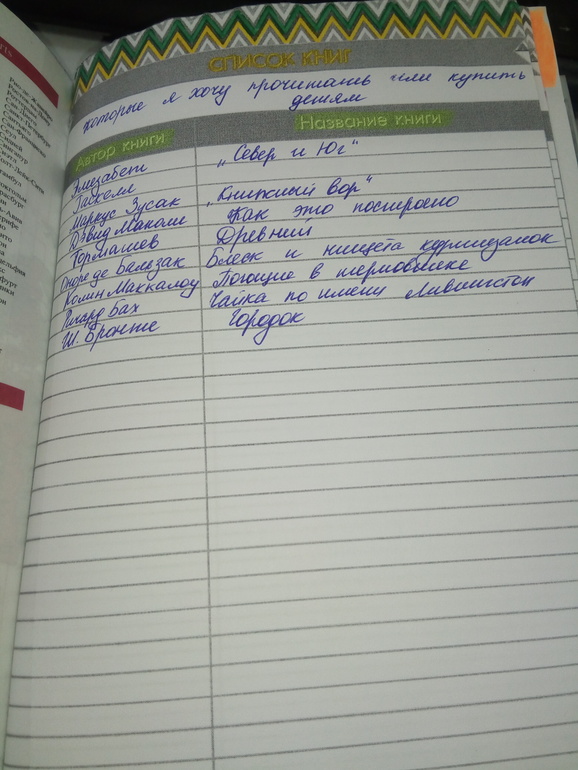 СПИСОК КНИГ
которые я хочу прочитать или купить
детям
Автор книги Название книги
Элизабет „Север и Юг“
Гаскелл
Маркус Зусак „Книжный вор“
Дэвид Маколи Как это построено
Тормашев Древний
Оноре де Бальзак Блеск и нищета куртизанок
Колин Маккалоу Поющие в терновнике
Ричард Бах Чайка по имени Ливингстон
Ш. Бронте Городок